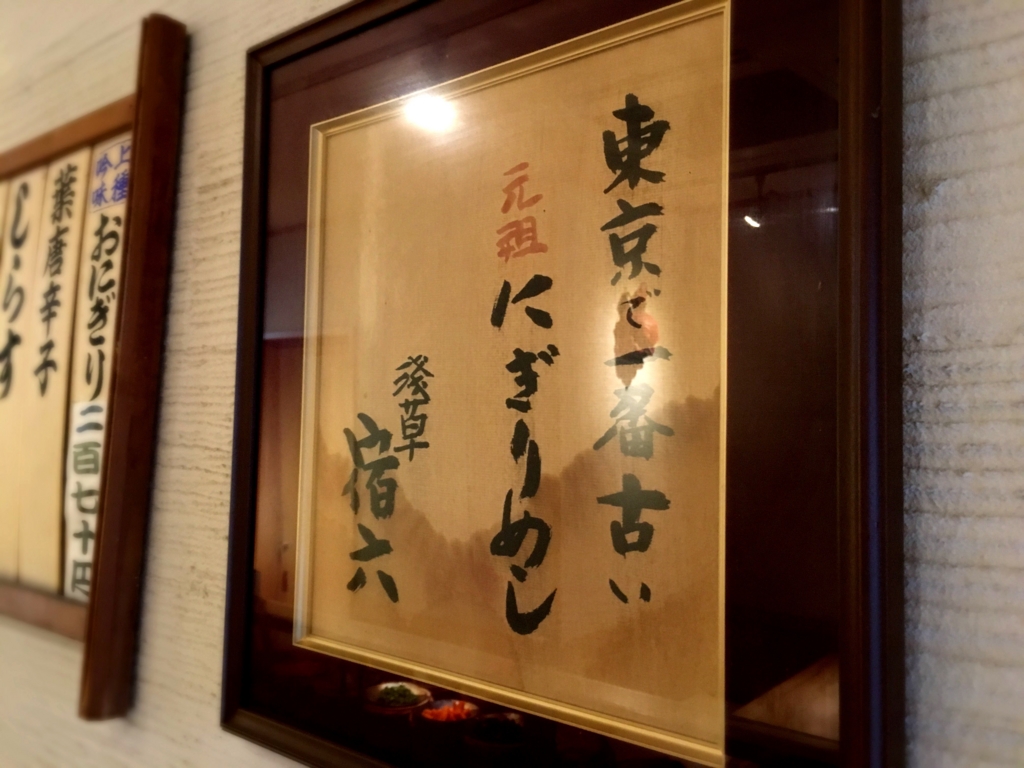 東京で一番古い
元祖
にぎりめし
浅草
宿六
上極
吟味
おにぎり二百七十円
葉唐辛子
しらす